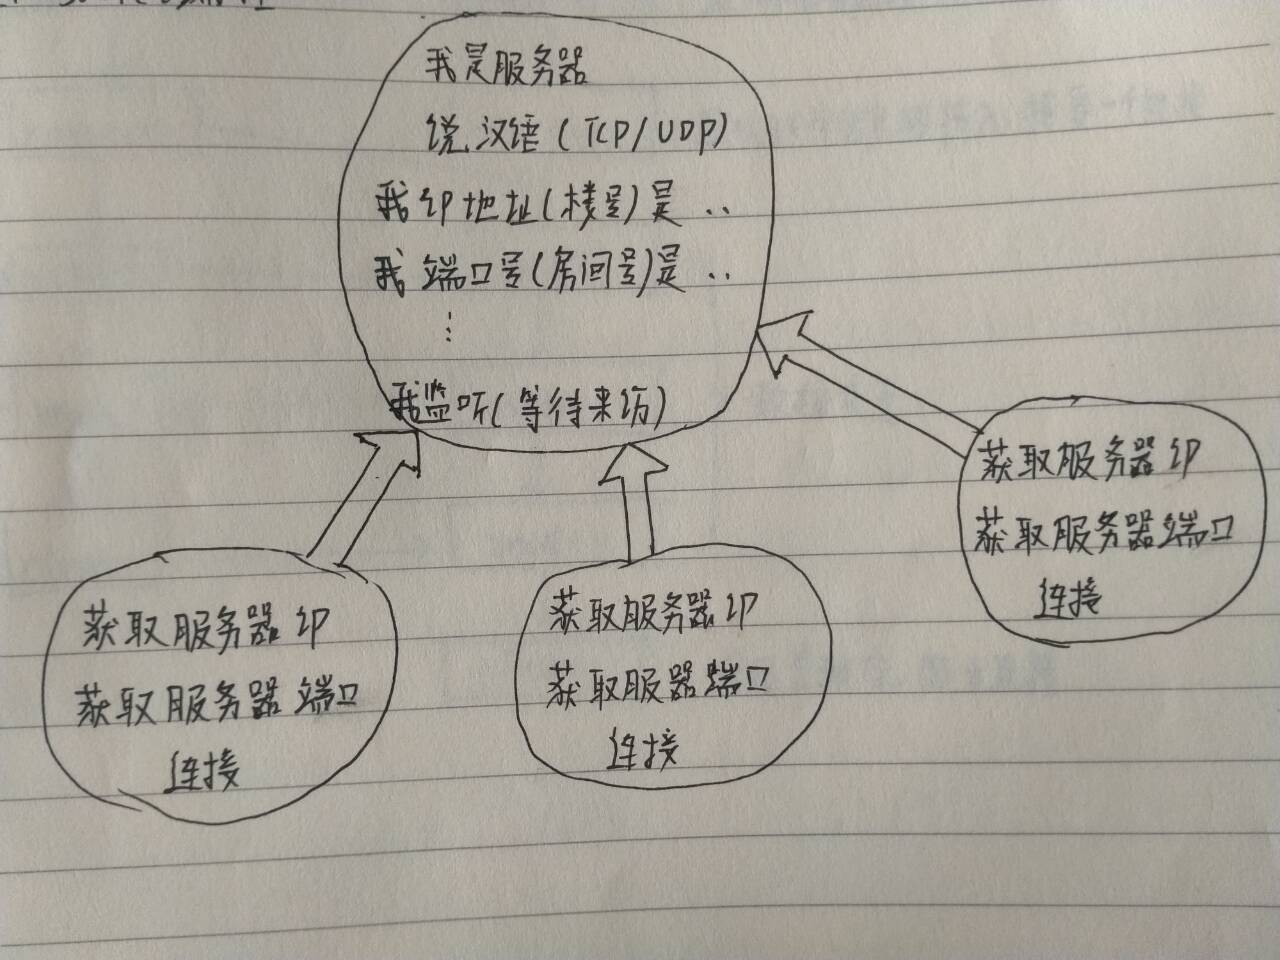 我是服务器
说汉语(TCP/UDP)
我IP地址(楼号)是..
我端口号(房间号)是..
⋮
我监听(等待来访)
获取服务器IP
获取服务器端口
连接
获取服务器IP
获取服器端口
连接
获取服务器IP
获取服务器端口
连接